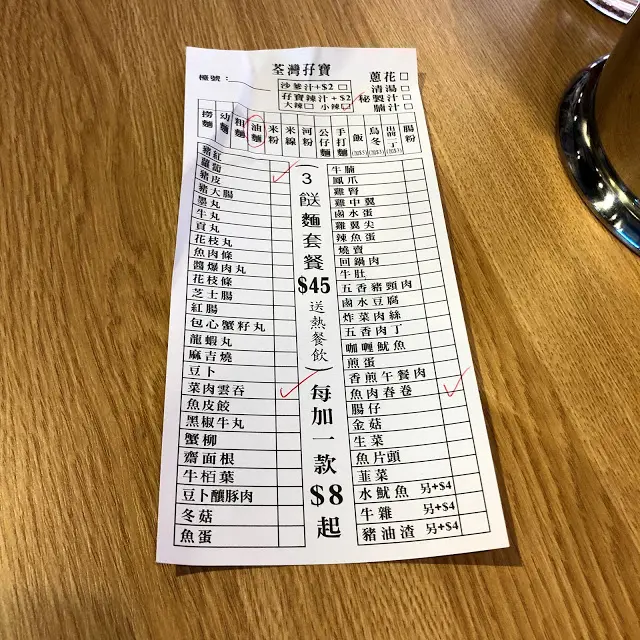 荃灣孖寶
檯號：
沙爹汁+$2
孖寶辣汁+$2
大辣 小辣
蔥花
清湯
秘製汁
腩汁
撈麵
幼麵
粗麵
油麵
米粉
米線
河粉
公仔麵
手打麵
飯
烏冬
出前一丁
腸粉
豬紅
蘿蔔
豬皮
豬大腸
墨丸
牛丸
貢丸
花枝丸
魚肉條
醬爆肉丸
花枝條
芝士腸
紅腸
包心蟹籽丸
龍蝦丸
麻吉燒
豆卜
菜肉雲吞
魚皮餃
黑椒牛丸
蟹柳
齋面根
牛栢葉
豆卜釀豚肉
冬菇
魚蛋
3餸麵套餐$45(送熱餐飲)每加一款$8起
牛腩
鳳爪
雞腎
雞中翼
鹵水蛋
雞翼尖
辣魚蛋
燒賣
回鍋肉
牛肚
五香豬頸肉
鹵水豆腐
炸菜肉絲
五香肉丁
咖喱魷魚
煎蛋
香煎午餐肉
魚肉春卷
腸仔
金菇
生菜
魚片頭
韮菜
水魷魚 另+$4
牛雜 另+$4
豬油渣 另+$4